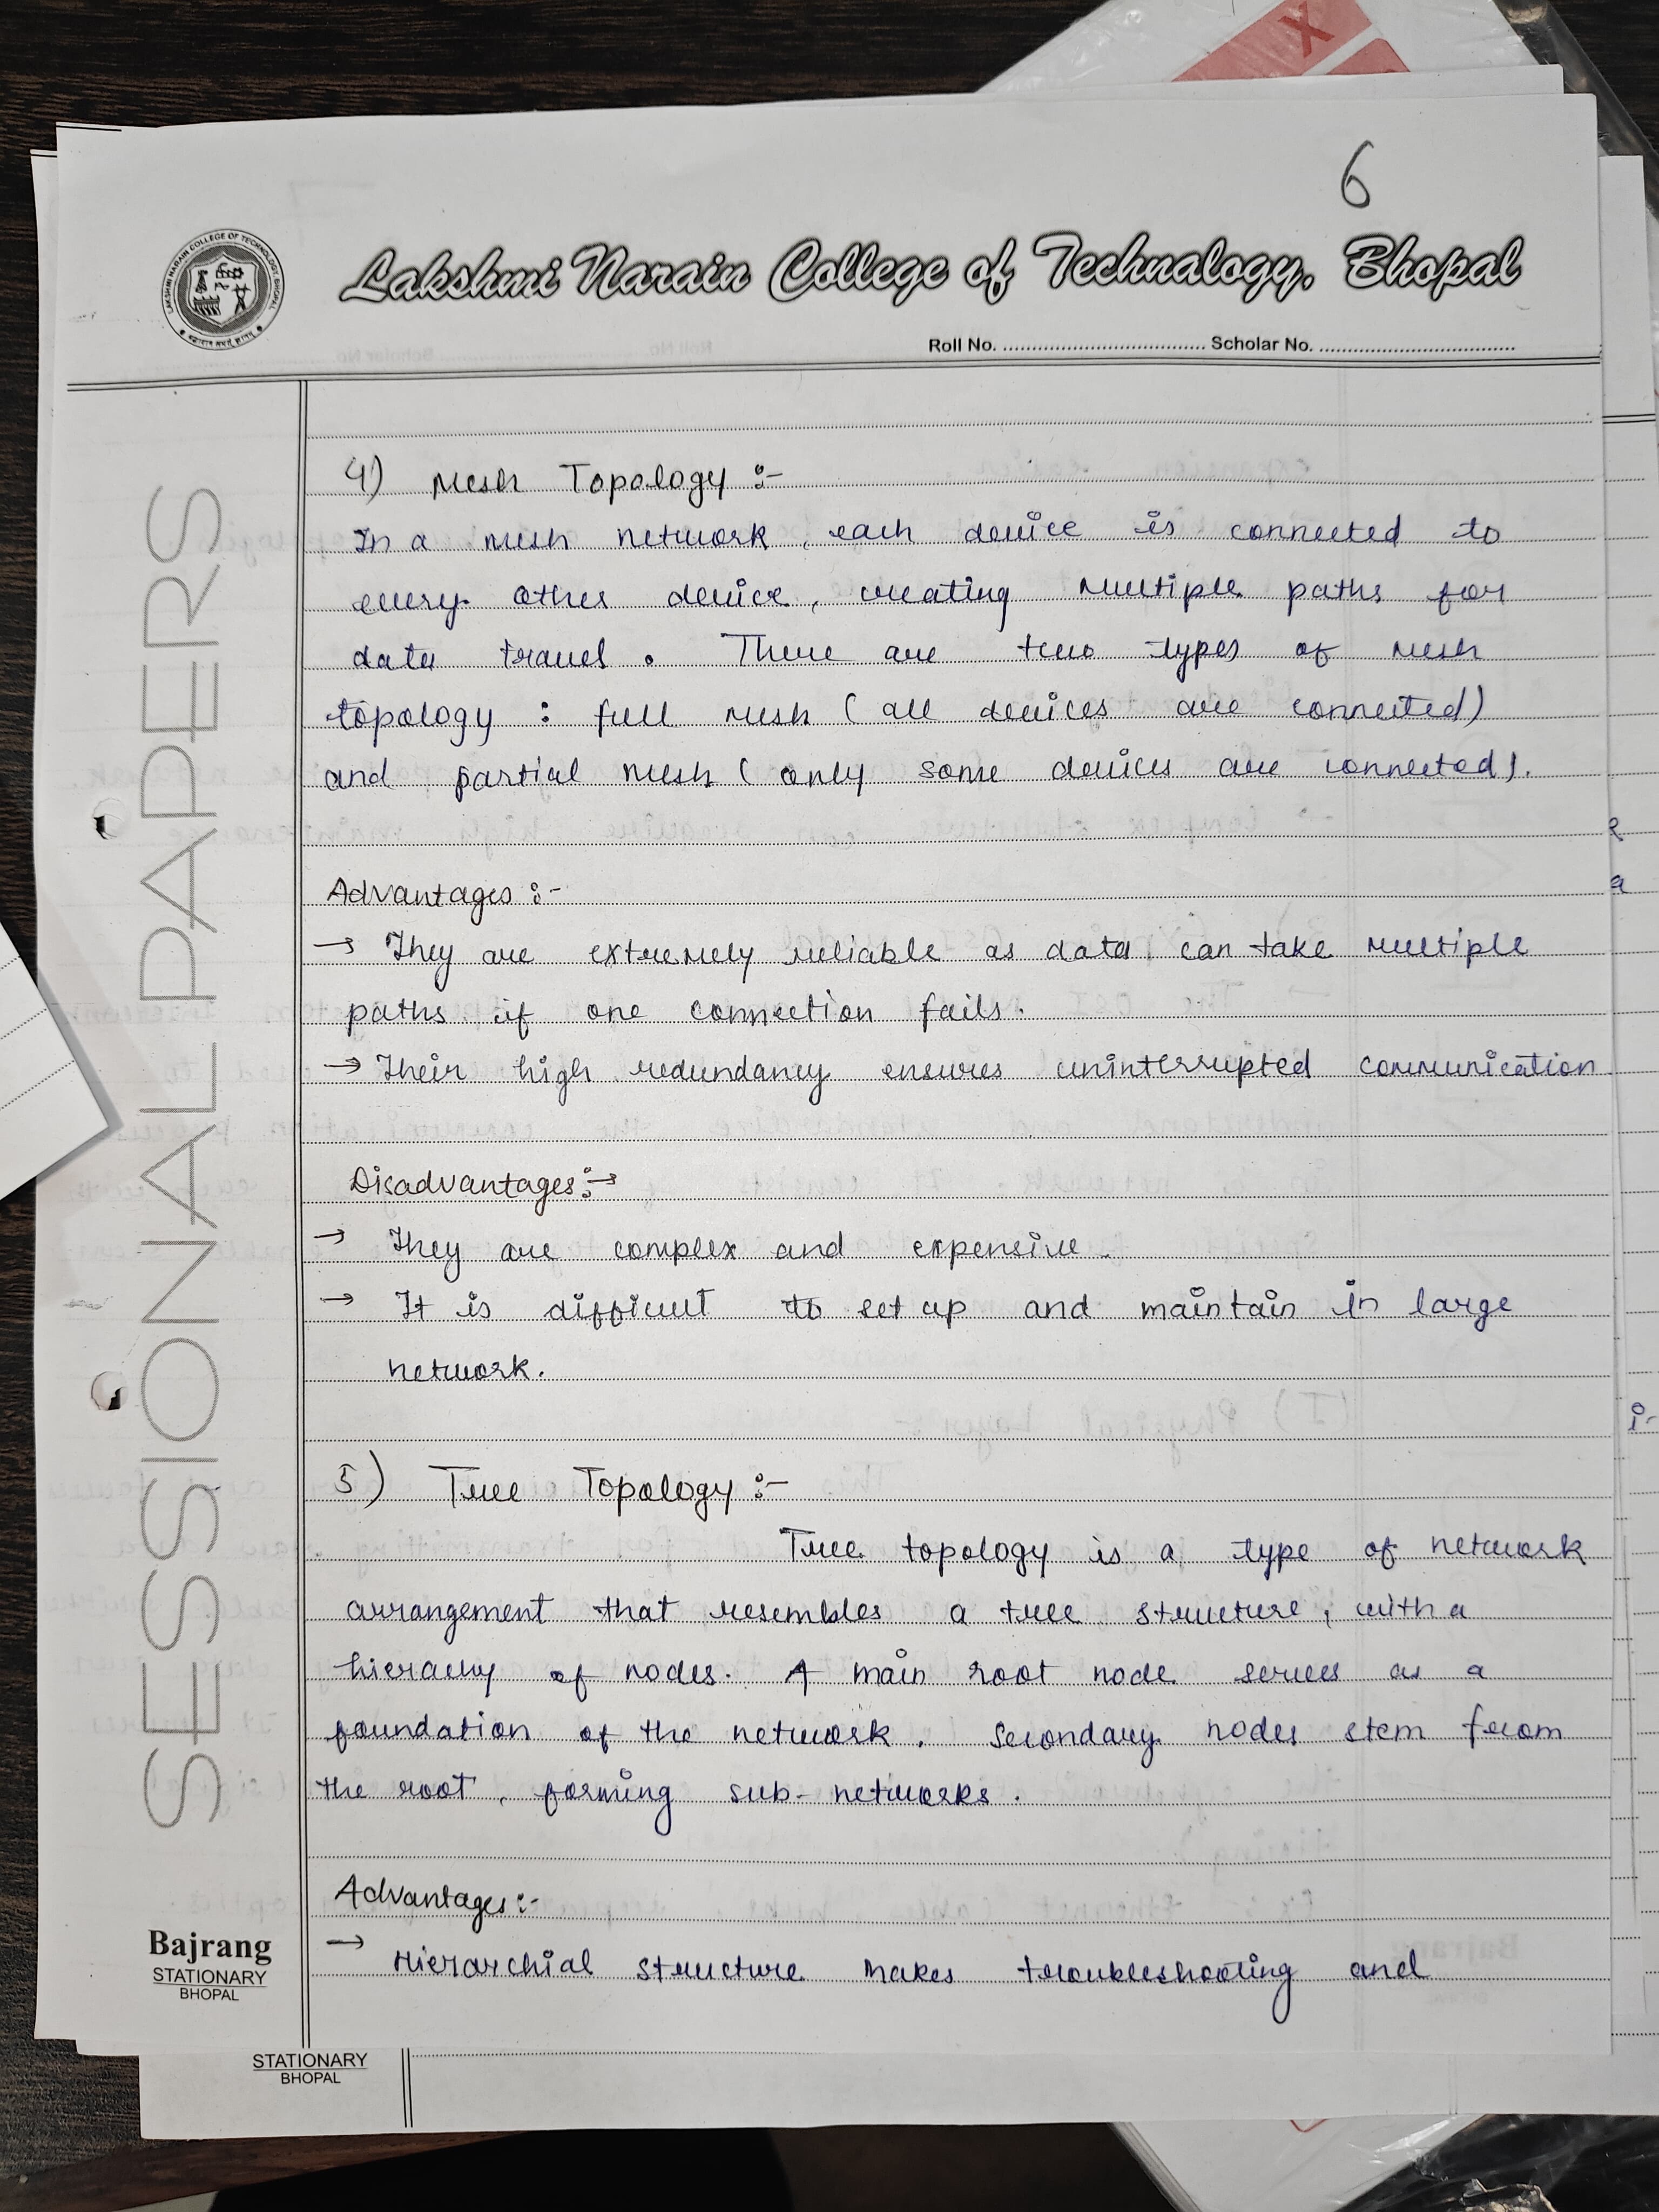 6
Lakshmi Narain College of Technalogy, Bhopal
LAKSHMI NARAIN COLLEGE OF TECHNOLOGY, BHOPAL
Roll No. .................................... Scholar No. ....................................
SESSIONAL PAPERS
4) Mesh Topology :-
In a mesh network, each device is connected to
every other device, creating multiple paths for
data travel. There are two types of mesh
topology : full mesh ( all devices are connected)
and partial mesh ( only some devices are connected).
Advantages :-
→ They are extremely reliable as data can take multiple
paths if one connection fails.
→ Their high redundancy ensures uninterrupted communication
Disadvantages :→
→ They are complex and expensive.
→ It is difficult to set up and maintain in large
network.
5) Tree Topology :-
Tree topology is a type of network
arrangement that resembles a tree structure, with a
hierachy of nodes. A main root node serves as a
foundation of the network. Secondary nodes stem from
the root, forming sub-networks.
Advantages :-
→ Hierarchial structure makes troubleshooting and
Bajrang
STATIONARY
BHOPAL
STATIONARY
BHOPAL